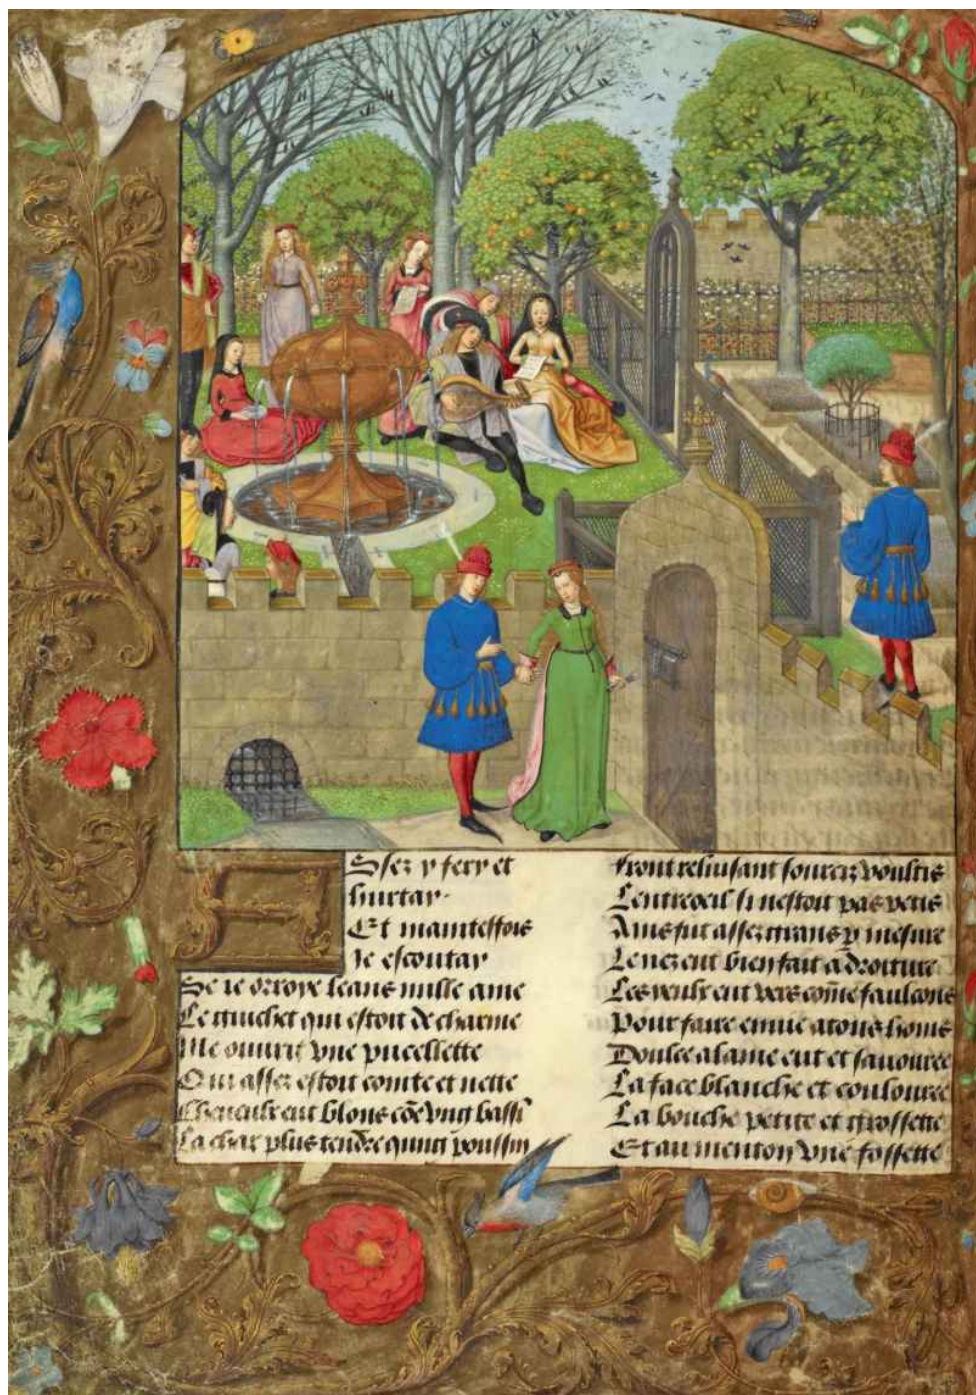 Assez y fery et
hurtay
Et maintesfois
Je escoutay
Se ie orroye leans nulle ame
Le guichet qui estoit de charme
Me ouurit vne pucellette
Qui assez estoit cointe et nette
Cheueulx eut blons cõe vng bassĩ
La char plus tendre qung poussin
Front reluisant sourciz voultis
Lentreoeil si nestoit pas petis
Ains fut assez grans p mesure
Le nez eut bien fait a droiture
Les yeulx eut vers cõme faulcons
Pour faire enuie a tous homs
Doulce alaine eut et sauouree
La face blanche et coulouree
La bouche petite et grossette
Et au menton vne fossette